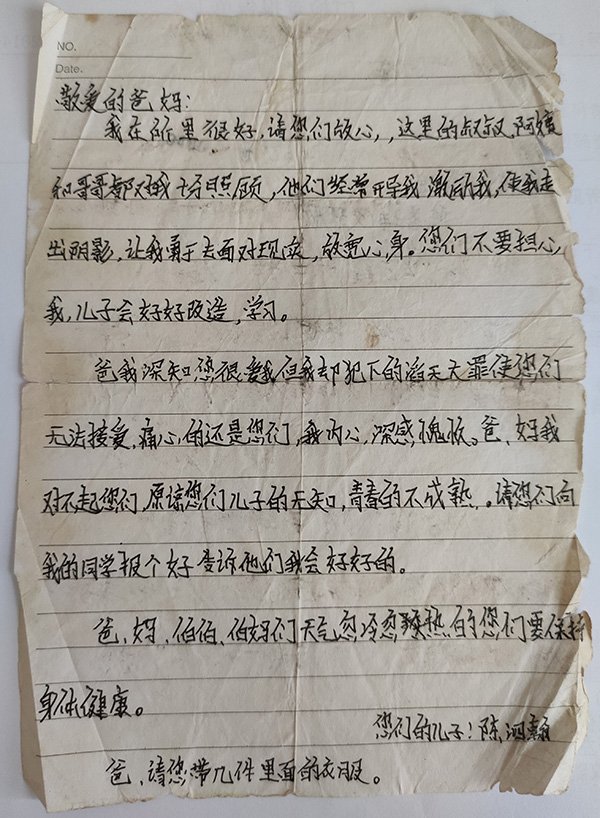 NO.
Date.
敬爱的爸妈:
我在所里很好,请您们放心,,这里的叔叔,阿姨
和哥哥都对我十分照顾,他们经常开导我激励我,使我走
出阴影,让我勇于去面对现实,放宽心,身。您们不要担心
我,儿子会好好改造,学习。
爸我深知您很爱我但我却犯下的滔天大罪使您们
无法接受,痛心的还是您们,我内心,深感,愧疚。爸、妈我
对不起您们,原谅您们儿子的无知,青春的不成熟,。请您们向
我的同学报个好告诉他们我会好好的。
爸、妈、伯伯、伯妈们天气忽冷忽热的您们要保持
身体健康。
您们的儿子:陈泗翰
爸、请您带几件里面的衣服。